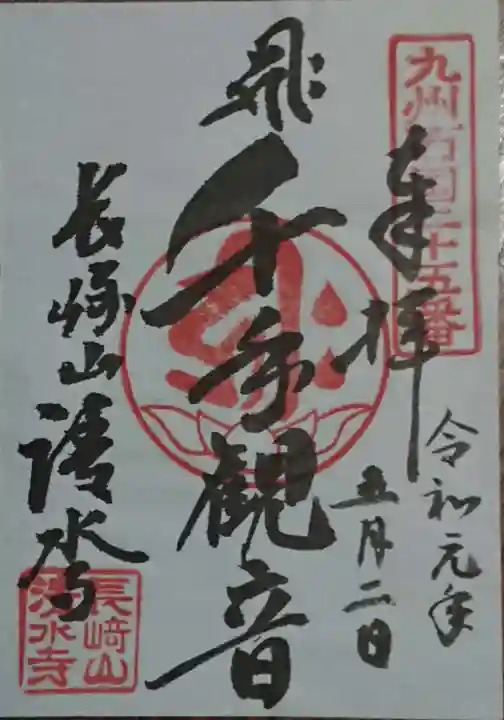 九州西国二十五番
奉拝
令和元年
五月二日
飛
千手観音
長崎山
清水寺
長﨑山
清水寺